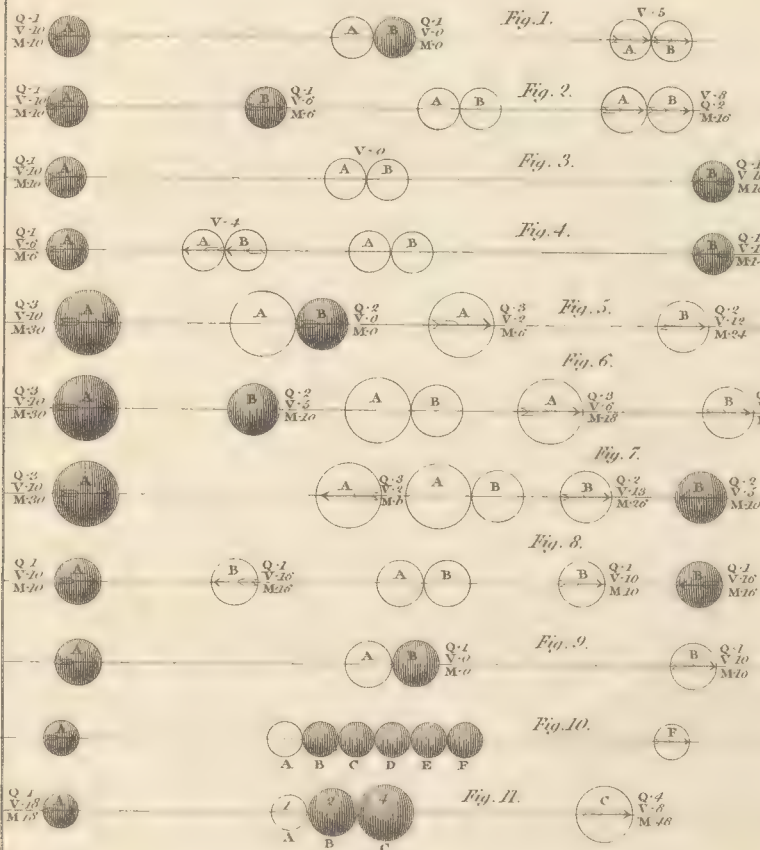 Q·1
V·10
M·10
A
A
B
Q·1
V·0
M·0
Fig.1.
V·5
A
B
Q·1
V·10
M·10
A
B
Q·1
V·6
M·6
A
B
Fig. 2.
A
B
V·8
Q·2
M·16
Q·1
V·10
M·10
A
V·0
A
B
Fig. 3.
B
Q·1
Q·1
V·6
M·6
A
V·4
A
B
A
B
Fig. 4.
B
Q·1
Q·3
V·10
M·30
A
A
B
Q·2
V·0
M·0
A
Q·3
V·2
M·6
Fig. 5.
B
Q·2
V·12
M·24
Q·3
V·10
M·30
A
B
Q·2
V·5
M·10
A
B
Fig. 6.
A
Q·3
V·6
M·18
B
Q·3
V·10
M·30
A
A
Q·3
V·2
A
B
Fig. 7.
B
Q·2
V·13
M·26
B
Q·2
V·5
M·10
Q·1
V·10
M·10
A
B
Q·1
V·16
M·16
A
B
Fig. 8.
B
Q·1
V·10
M·10
B
Q·1
V·16
M·16
A
A
B
Q·1
V·0
M·0
Fig. 9.
B
Q·1
V·10
M·10
A
A
B
C
D
E
F
Fig. 10.
F
Q·1
V·18
M·18
A
1
2
4
A
B
C
Fig. 11.
C
Q·4
V·8
M·48